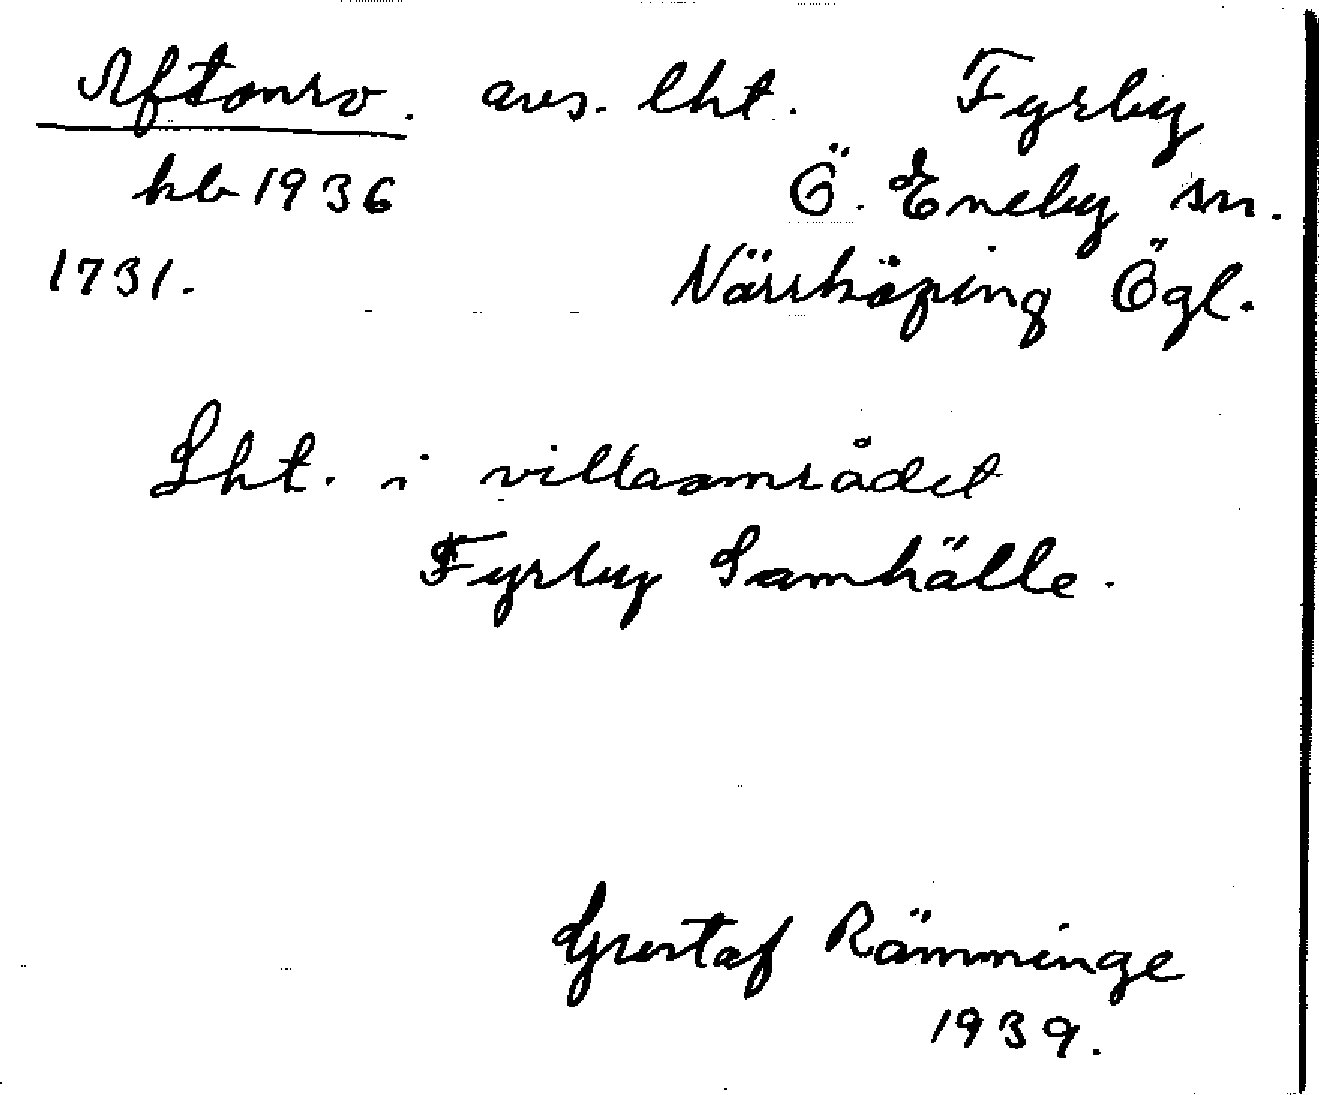 Aftonro. avs. lht. Fyrby
hb 1936 Ö. Eneby sn.
1731. Norrköping Ögl.
Lht. i villaområdet
Fyrby Samhälle.
Gustaf Rämminge
1939.